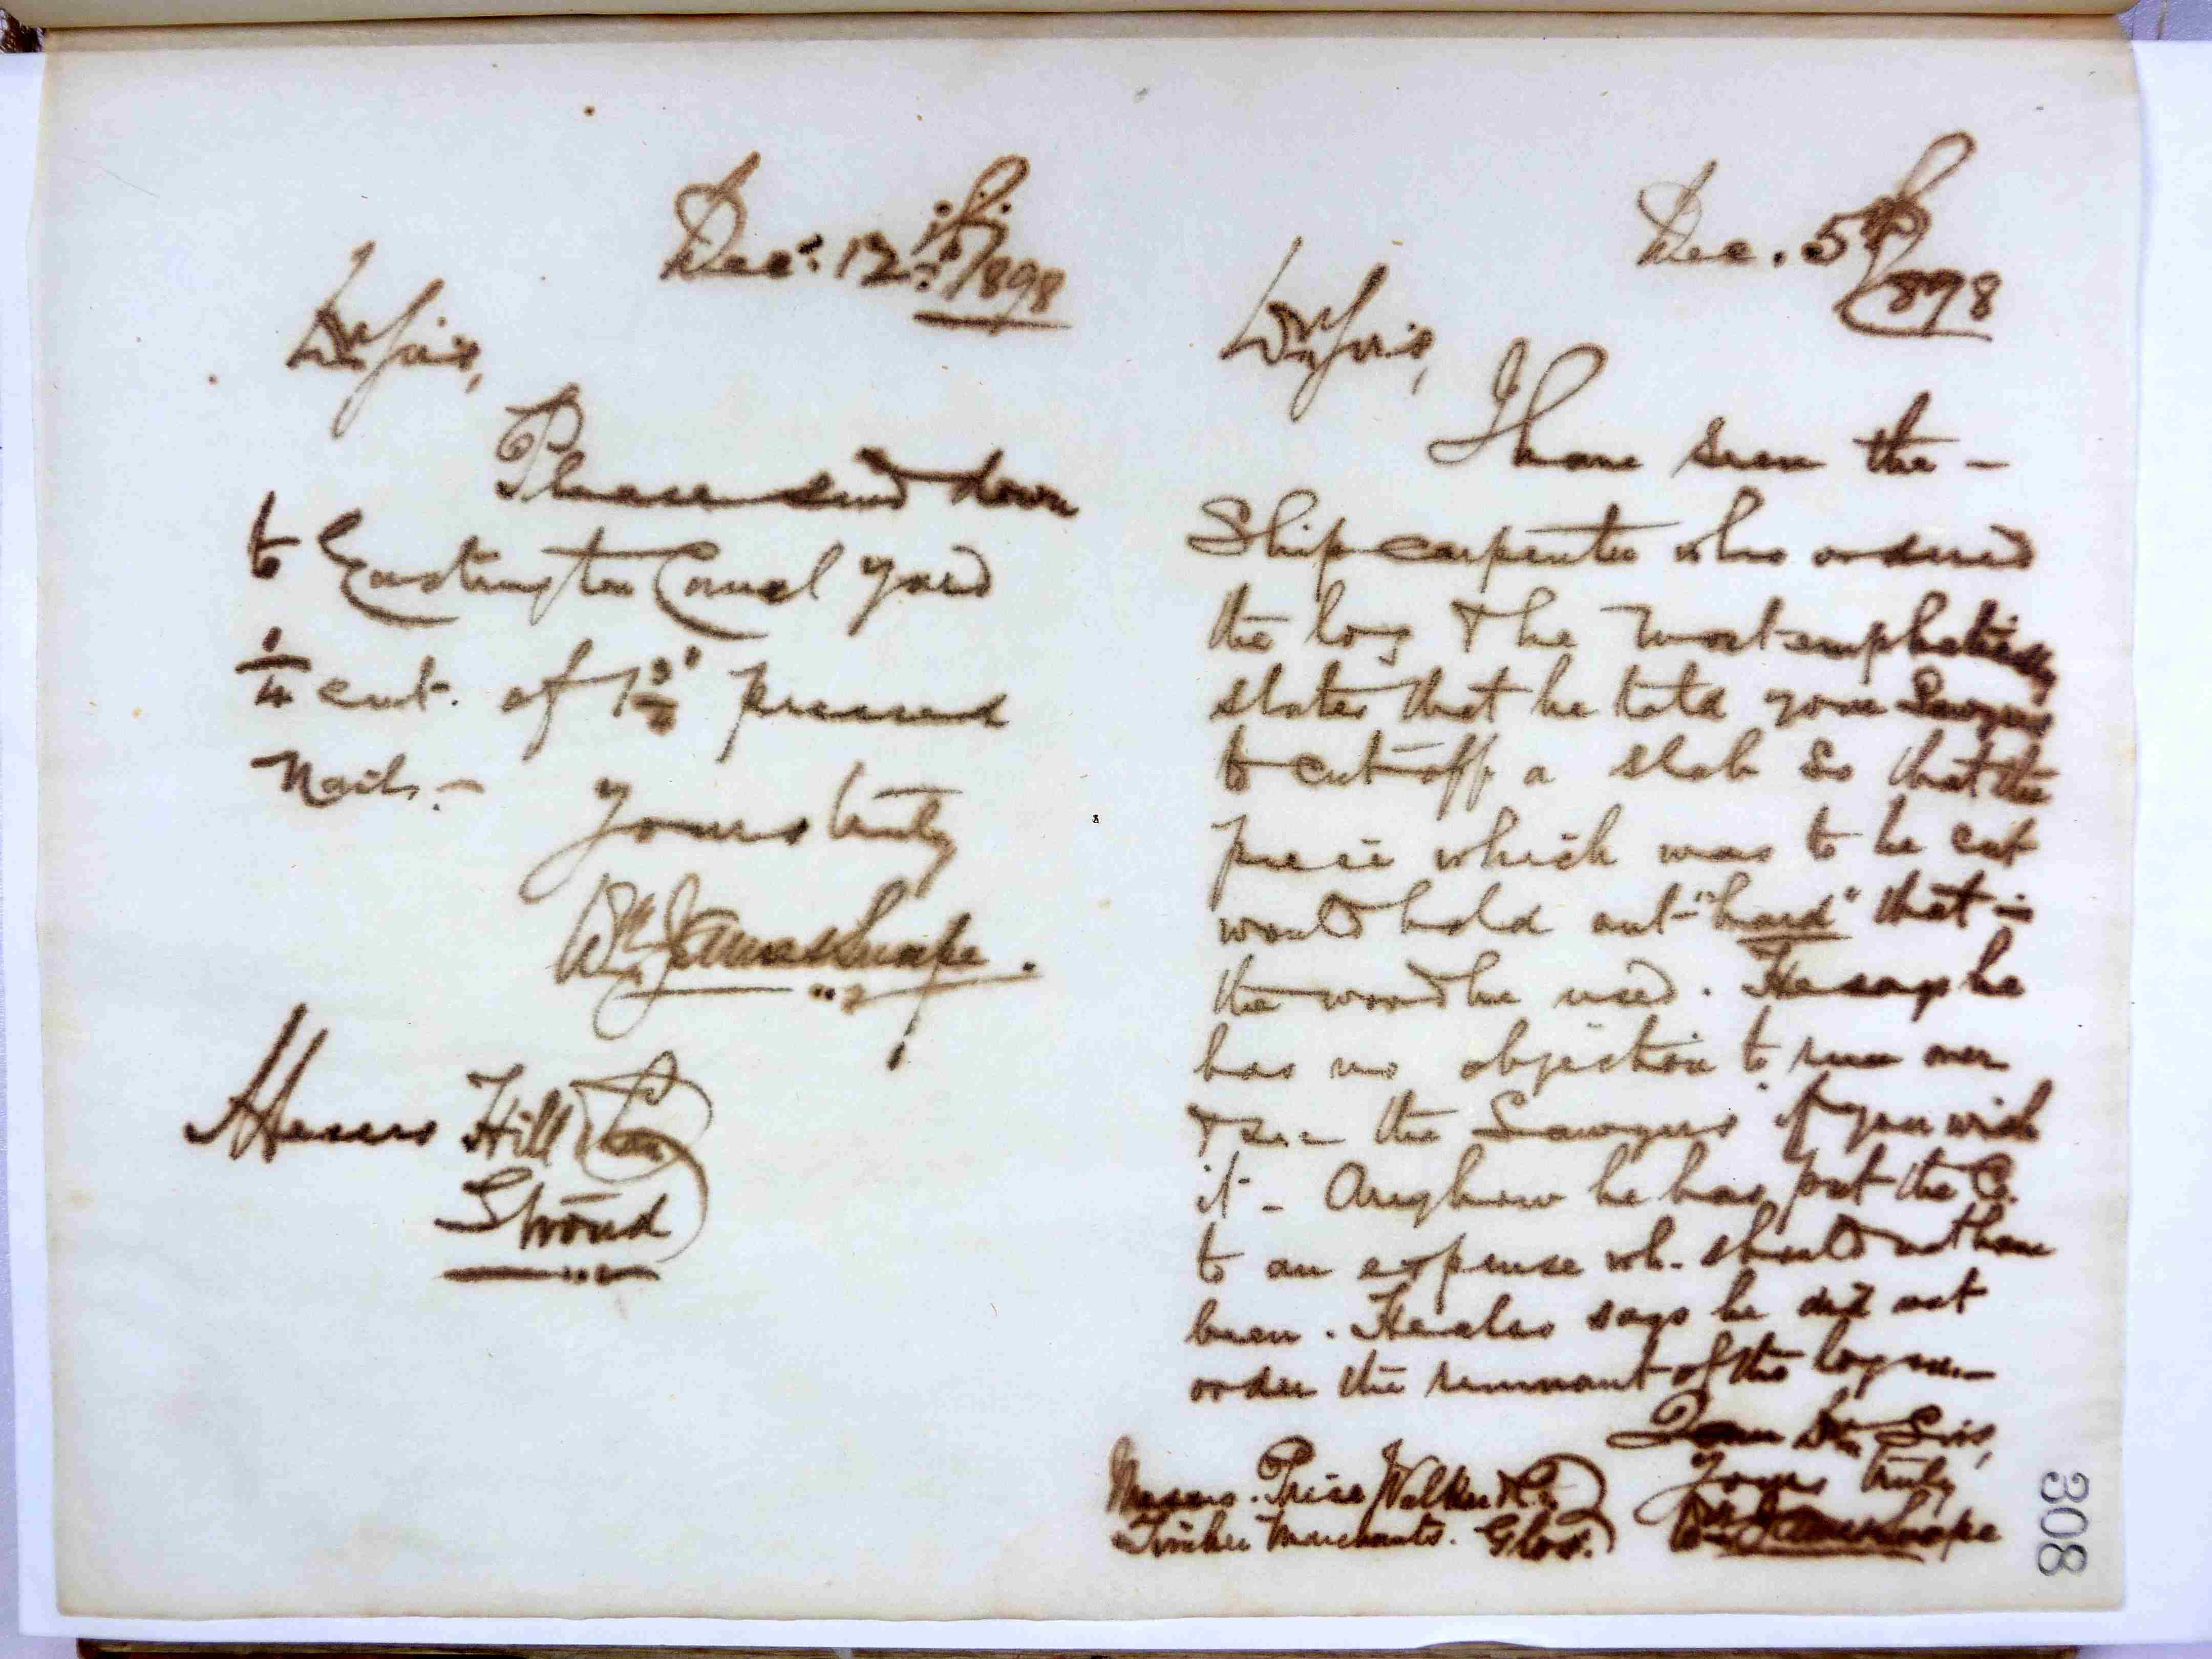 Decr. 12th/1898
Dr Sirs,
Please send down
to Eastington Canal Yard
1/4 cwt. of 1 3/4" pressed
Nails.-
Yours truly
Wm. J Snape.
Messrs Hill
Stroud
Dec. 5th/1898
Dr Sirs,
I have seen the -
Ship carpenter who ordered
the log & he most emphatically
states that he told your Sawyers
to cut off a slab so that the
piece which was to be cut
would hold out "hard" that is
the wood he used. He says he
has no objection to run over
& see the Sawyers if you wish
it - Anyhow he has put the Co.
to an expense wh. should not have
been. He also says he did not
order the remnant of the log
Dr Sirs,
Yours truly
Wm Snape
Messrs. Price Walker & Co.
Timber Merchants. Glos.
308